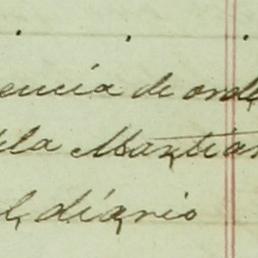 encia de orde
ila Martian
el diario